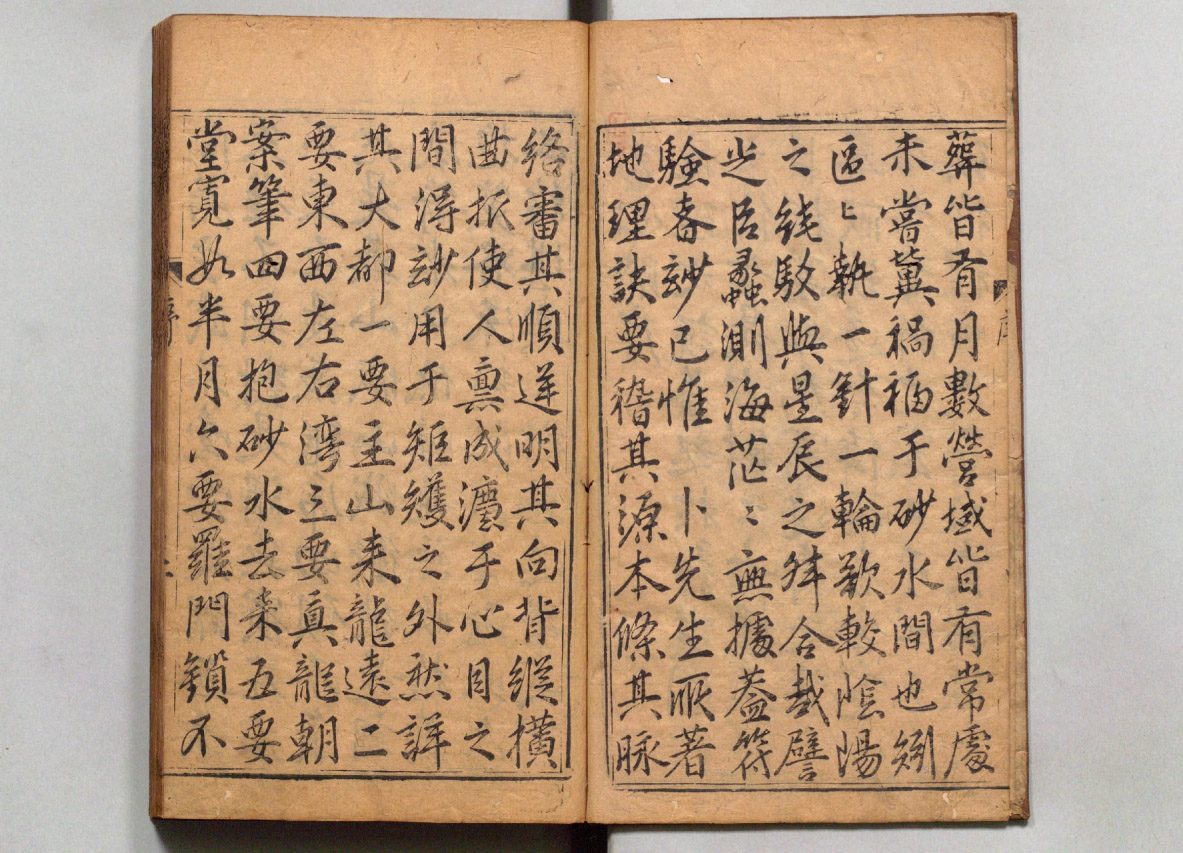 葬皆有月數營域皆有常處
未嘗冀禍福于砂水間也矧
區〻執一針一輪欲較陰陽
之純駁與星辰之舛合哉譬
之以蠡測海茫〻無據葢符
驗玅已惟 卜先生所著
地理訣要稽其源本條其脉
絡審其順逆明其向背縱橫
曲折使人禀成灋于心目之
間得玅用于矩矱之外然詳
其大都一要主山来龍遠二
要東西左右湾三要真龍朝
案筆四要抱砂水去来五要
堂寬如半月六要羅門鎖不
序